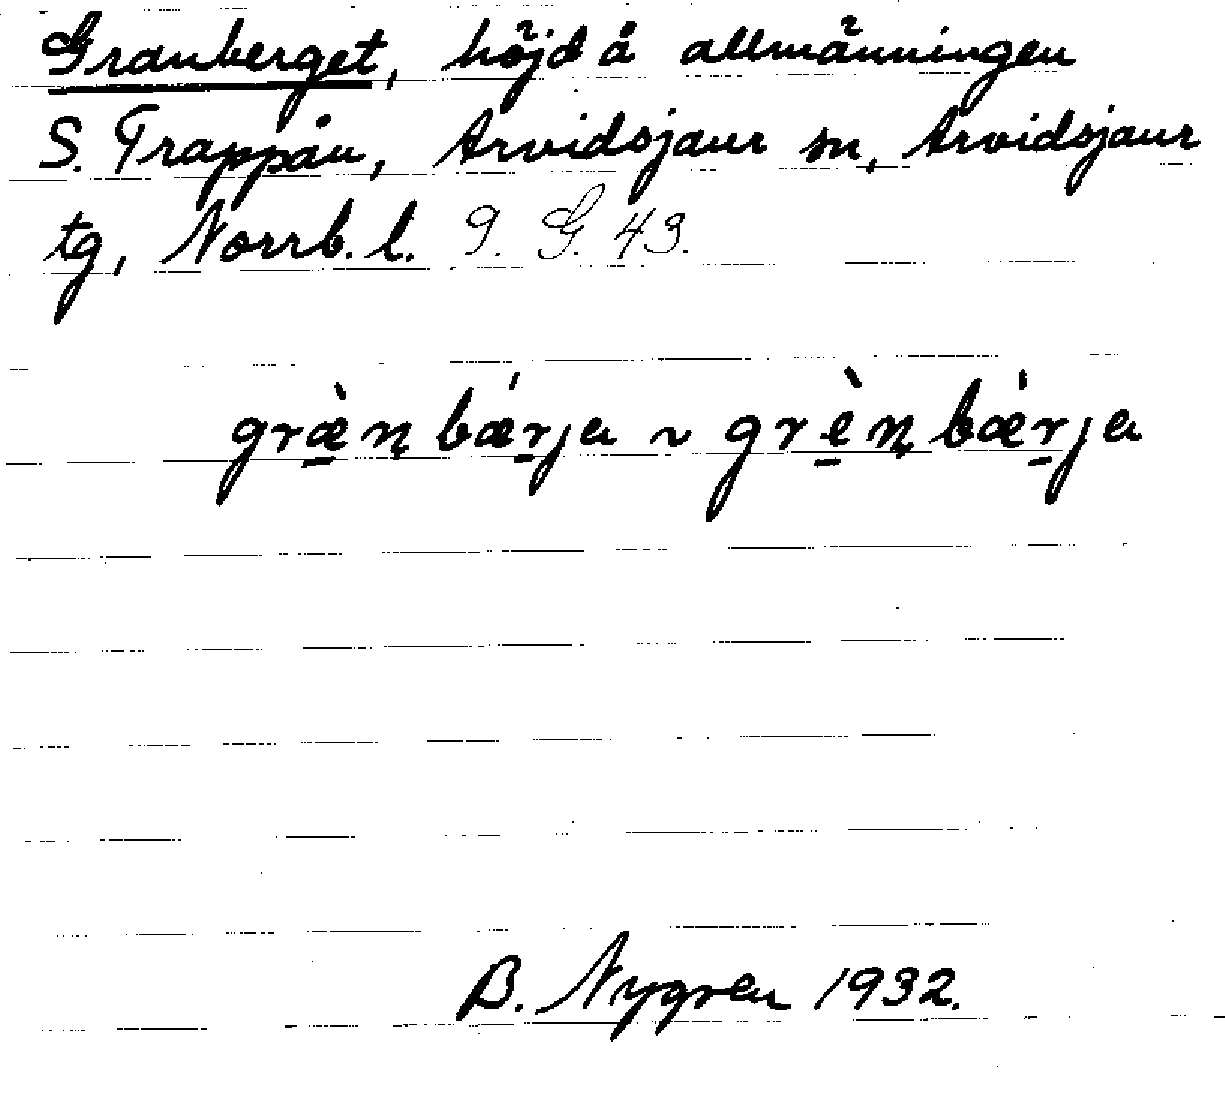 Granberget, höjd å allmänningen
S. Trappån, Arvidsjaur sn, Arvidsjaur
tg, Norrb. l. 9. G. 43.
græ̠̀n̨ bǽr̠ja ~ grè̠n̨ bǽr̠ja
B. Nygren 1932.